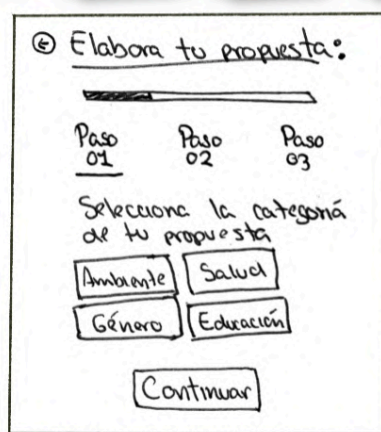 Elabora tu propuesta:
Paso Paso Paso
01 02 03
Selecciona la categoría
de tu propuesta
Ambiente Salud
Género Educación
Continuar